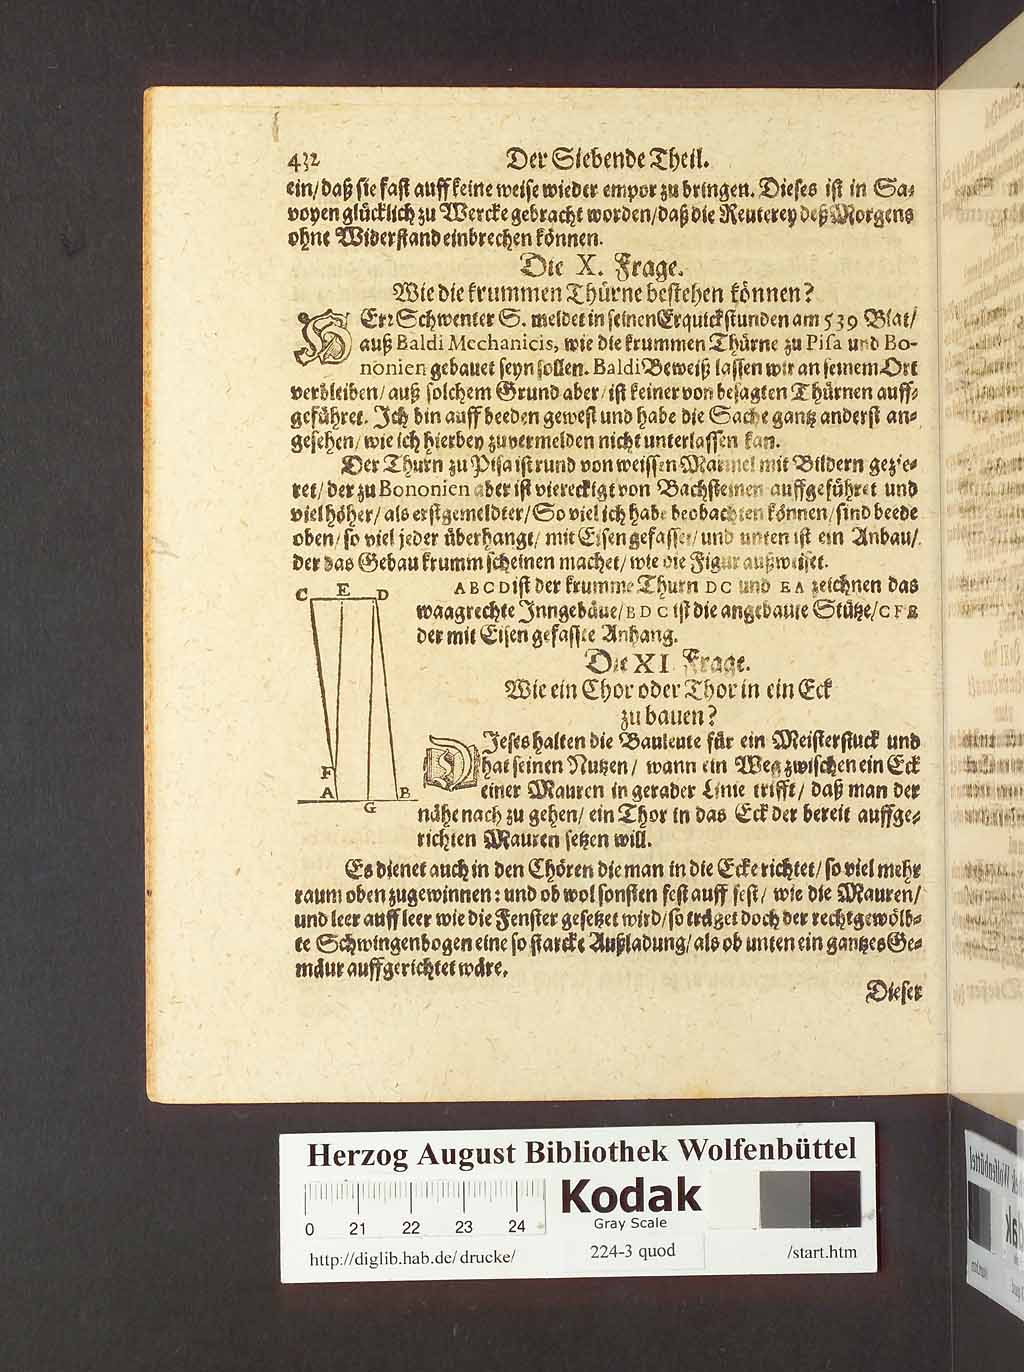 432
Der Siebende Theil.
ein/ daß sie fast auff keine weise wieder empor zu bringen. Dieses ist in Sa-
voyen glücklich zu Wercke gebracht worden/ daß die Reuterey deß Morgens
ohne Widerstand einbrechen können.
Die X. Frage.
Wie die krummen Thürne bestehen können?
HErr Schwenter S. meldet in seinen Erquickstunden am 539 Blat/
auß Baldi Mechanicis, wie die krummen Thürne zu Pisa und Bo-
nonien gebauet seyn sollen. Baldi Beweiß lassen wir an seinem Ort
verbleiben/ auß solchem Grund aber/ ist keiner von besagten Thürnen auff-
geführet. Ich bin auff beeden gewest und habe die Sache gantz anderst an-
gesehen/ wie ich hierbey zuvermelden nicht unterlassen kan.
Der Thurn zu Pisa ist rund von weissen Marmel mit Bildern gezie-
ret/ der zu Bononien aber ist viereckigt von Bachsteinen auffgeführet und
viel höher/ als erstgemeldter/ So viel ich habe beobachten können/ sind beede
oben/ so viel jeder überhangt/ mit Eisen gefasset/ und unten ist ein Anbau/
der das Gebau krumm scheinen machet/ wie die Figur außweiset.
ABCD ist der krumme Thurn DC und EA zeichnen das
waagrechte Inngebäue/ BDC ist die angebaute Stütze/ CFE
der mit Eisen gefasste Anhang.
C E D
F
A B
G
Die XI. Frage.
Wie ein Chor oder Thor in ein Eck
zu bauen?
DIeses halten die Bauleute für ein Meisterstuck und
hat seinen Nutzen/ wann ein Weg zwischen ein Eck
einer Mauren in gerader Linie trifft/ daß man der
nähe nach zu gehen/ ein Thor in das Eck der bereit auffge-
richten Mauren setzen will.
Es dienet auch in den Chören die man in die Ecke richtet/ so viel mehr
raum oben zugewinnen: und ob wol sonsten fest auff fest/ wie die Mauren/
und leer auff leer wie die Fenster gesetzet wird/ so träget doch der rechtgewölb-
te Schwingenbogen eine so starcke Außladung/ als ob unten ein gantzes Ge-
mäur auffgerichtet wäre.
Dieser
Herzog August Bibliothek Wolfenbüttel
0 21 22 23 24
Kodak
Gray Scale
http://diglib.hab.de/drucke/
224-3 quod
/start.htm